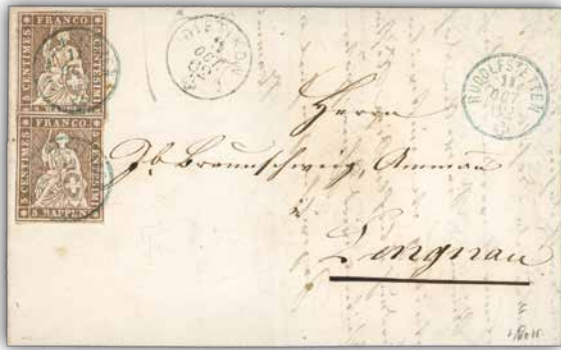 FRANCO
5 CENTIMES
5 CENTESIMI
RAPPEN
FRANCO
5 CENTIMES
5 CENTESIMI
5 RAPPEN
DIETIKON
OCT
RUDOLFSTETTEN
OCT
Herrn
Jb. Braunschweig, Amman
Lengnau